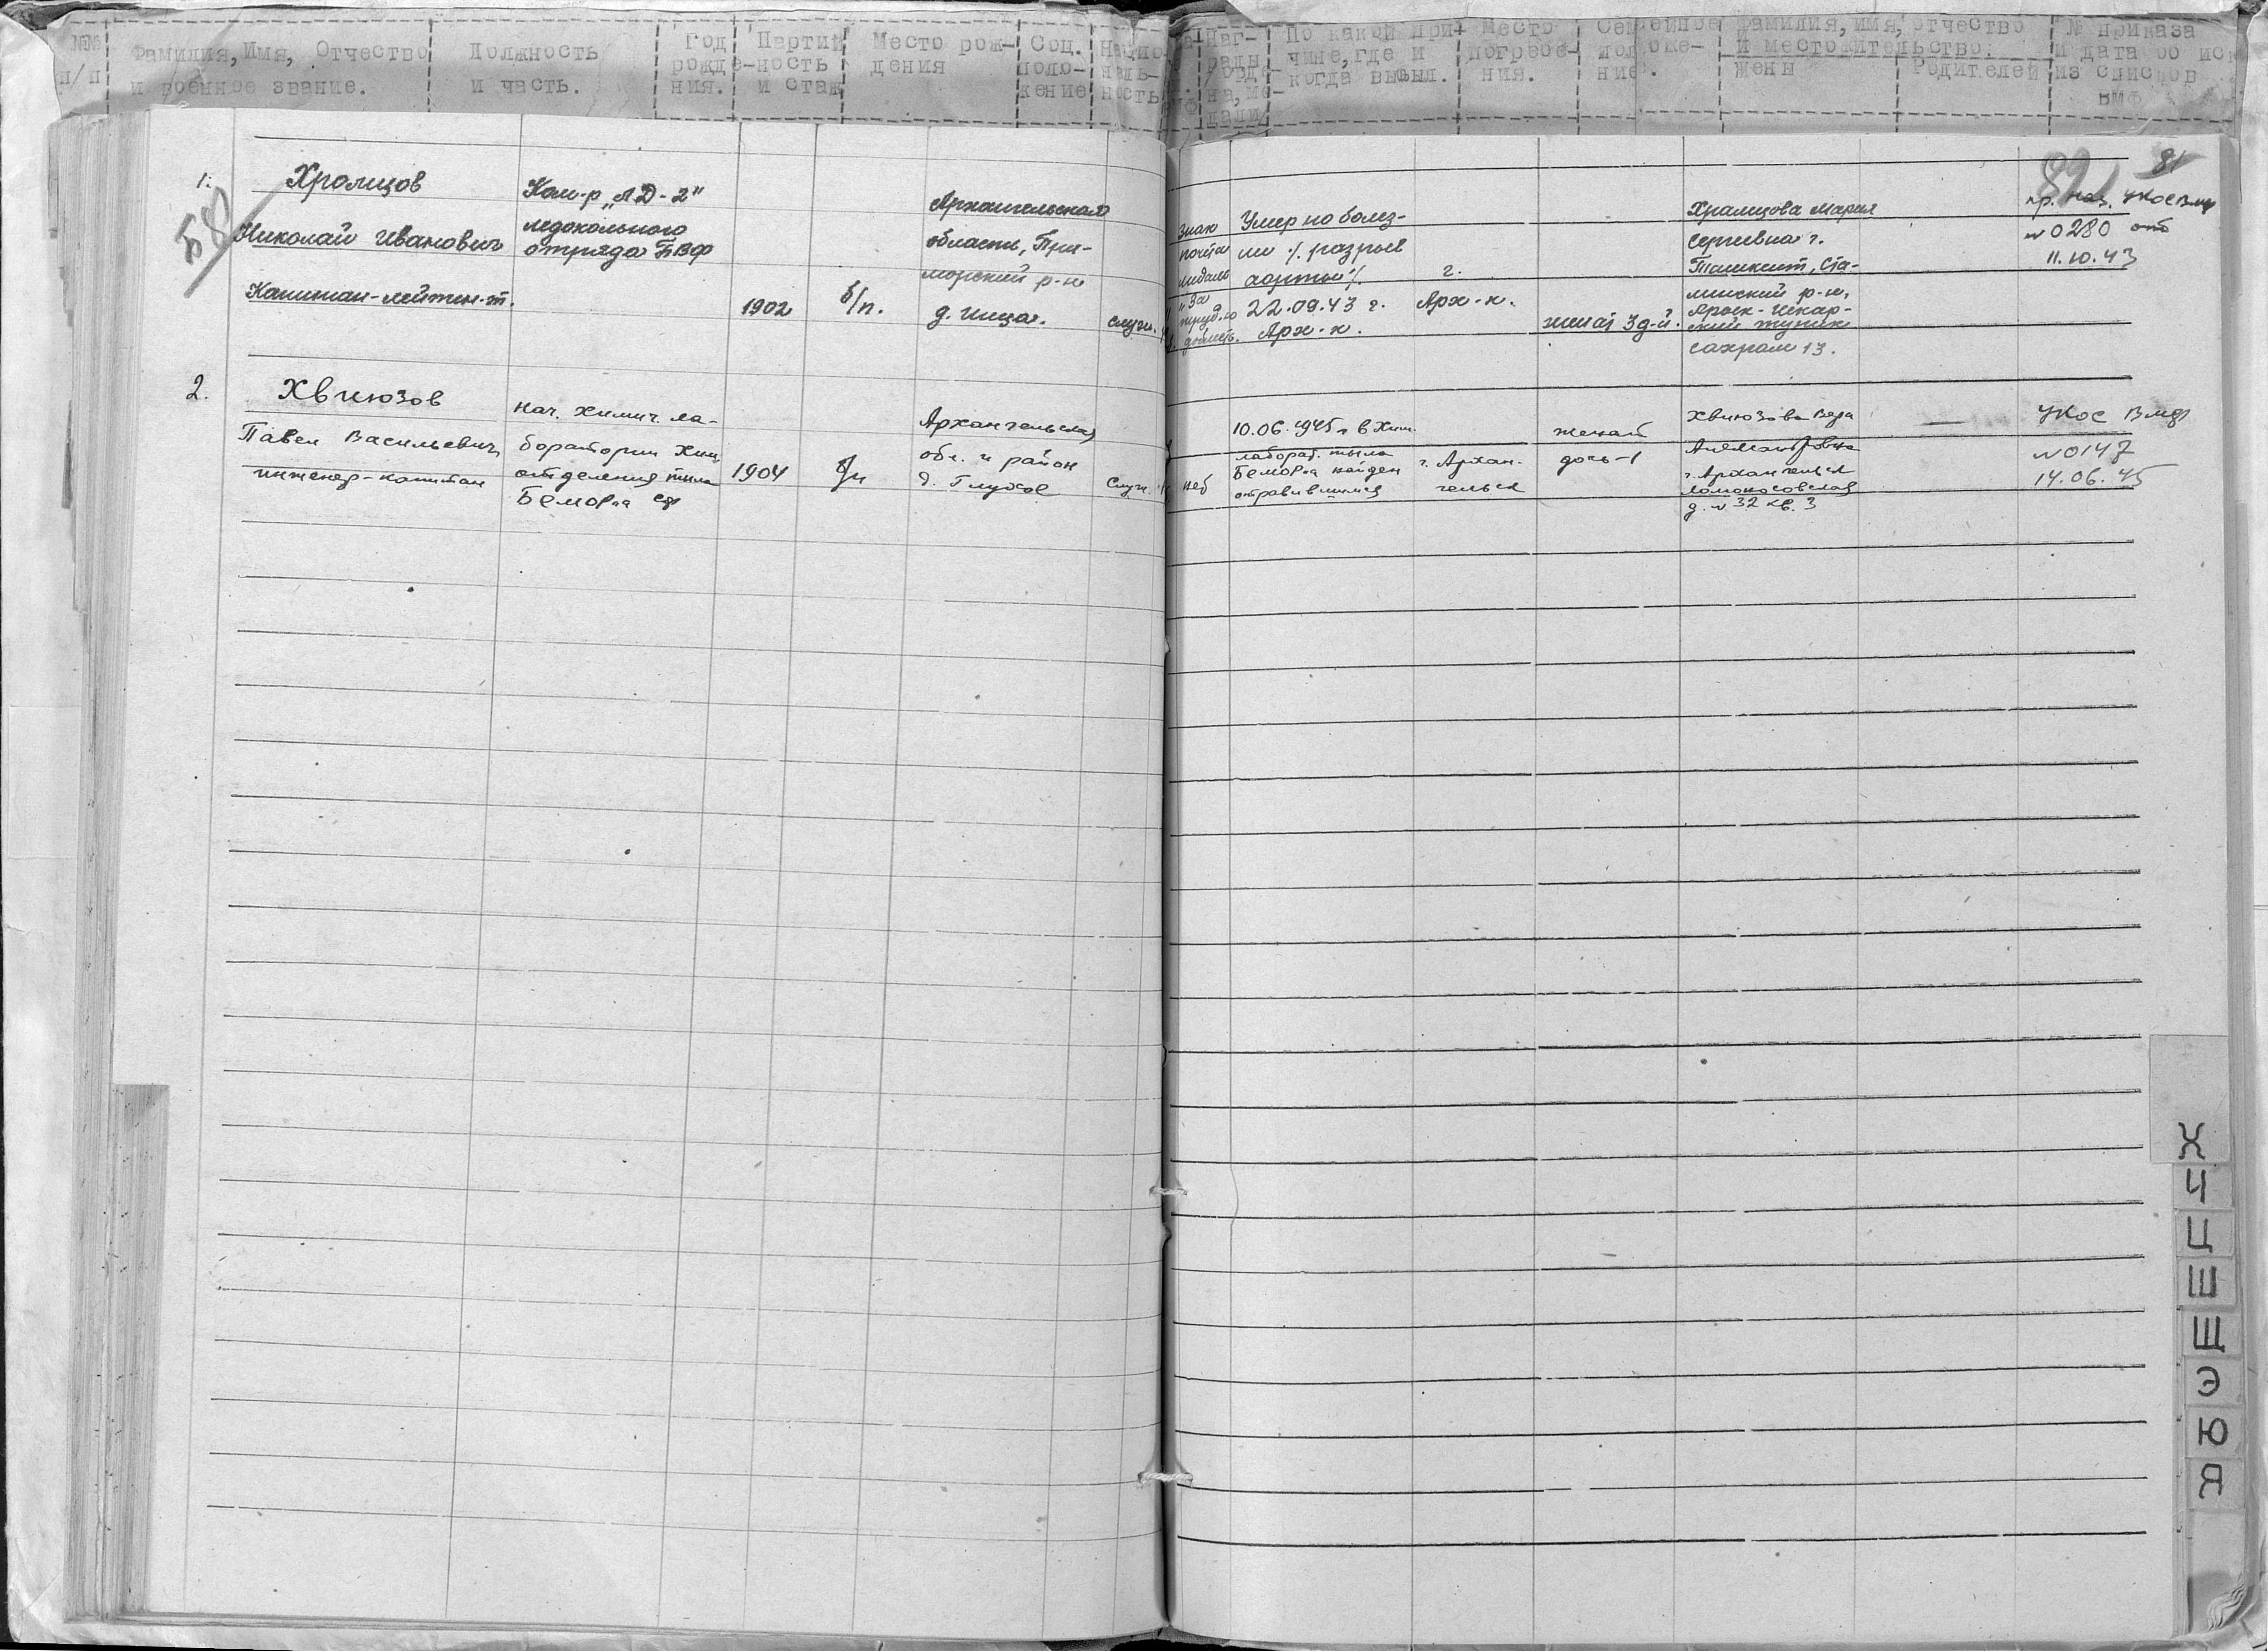 №№ п/п
Фамилия, Имя, Отчество и военное звание.
Должность и часть.
Год рожде-ния.
Партий-ность и стаж
Место рож-дения
Соц. поло-жение
По какой при-чине, где и когда выбыл.
Место погребе-ния.
Семейное поло-же-ние.
Фамилия, имя, отчество и местожительство:
Жены
Родителей
№ приказа и дата об иск из списков ВМФ
81
1.
Храмцов
Николай Иванович
Капитан-лейтен-т.
Ком-р „ЛД-2"
ледокольного
отряда БВФ
1902
б/п.
Архангельская
область, При-
морский р-н
д.
служ.
Знак
почёта
медаль
"За
труд.
доблесть.
Умер по болез-
ни /. разрыв
аорты /.
22.09.43 г.
Арх-к.
г.
Арх-к.
женат 3 д-й.
Храмцова Мария
Сергеевна г.
Ташкент, Ста-
линский р-н,
тупик
13.
пр. УКОС ВМФ
№ 0280 от
11.10.43
2.
Хвиюзов
Павел Васильевич
инженер-капитан
Нач. химич. ла-
боратории Хим.
отделения тыла
БелМОР'а СФ
1904
б/п
Архангельская
обл. и район
д. Глухое
служ.
нет
10.06.1945 г. в Хим.
лаборат. тыла
БелМОР'а найден
отравившимся
г. Архан-
гельск
женат
дочь-1
Хвиюзова Вера
Александровна
г. Архангельск
Ломоносовская
д. № 32 кв. 3
—
УКОС ВМФ
№ 0147
14.06.45
Х
Ч
Ц
Ш
Щ
Э
Ю
Я